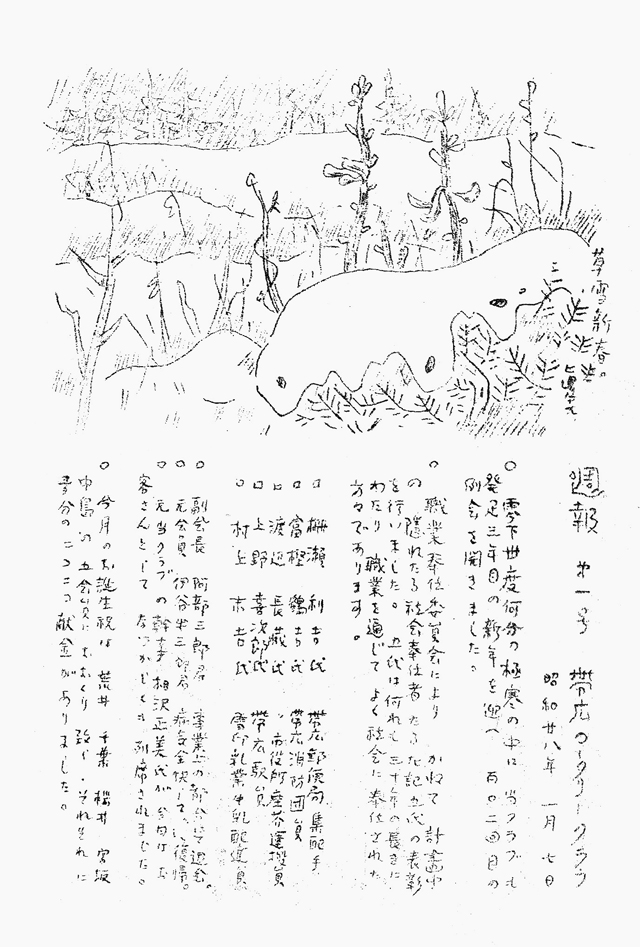 草雪新春。
週報 第一号 帯広ロータリークラブ
昭和廿八年 一月 七日
○ 零下廿度何分の極寒の中に 当クラブも
発足三年目の新年を迎へ 百〇二回目の
例会を開きました。
○ 職業奉仕委員会により かねて計画中
の隠れたる社会奉仕者たる左記五氏の表彰
を行いました。五氏は何れも三十年の長きに
わたり 職業を通じて よく社会に奉仕された
方々であります。
○ 柳瀬 利吉氏 帯広郵便局集配手
○ 富樫 鶴吉氏 帯広消防団員
○ 渡辺 長蔵氏 市役所塵芥運搬員
○ 上野 喜次郎氏 帯広駅員
○ 村上 末吉氏 雪印乳業牛乳配達員
○ 副会長 阿部三郎君 事業上の都合で退会
○ 元会員 伊谷半三郎君 病気全快して 復帰。
○ 元当クラブの幹事 相沢正美氏が 今日はお
客さんとして なつかしくも列席されました。
○ 今月のお誕生祝は 荒井 千葉 桜井 宮坂
中島 の五会員におくり 致し、それぞれに
応分のニコニコ献金がありました。